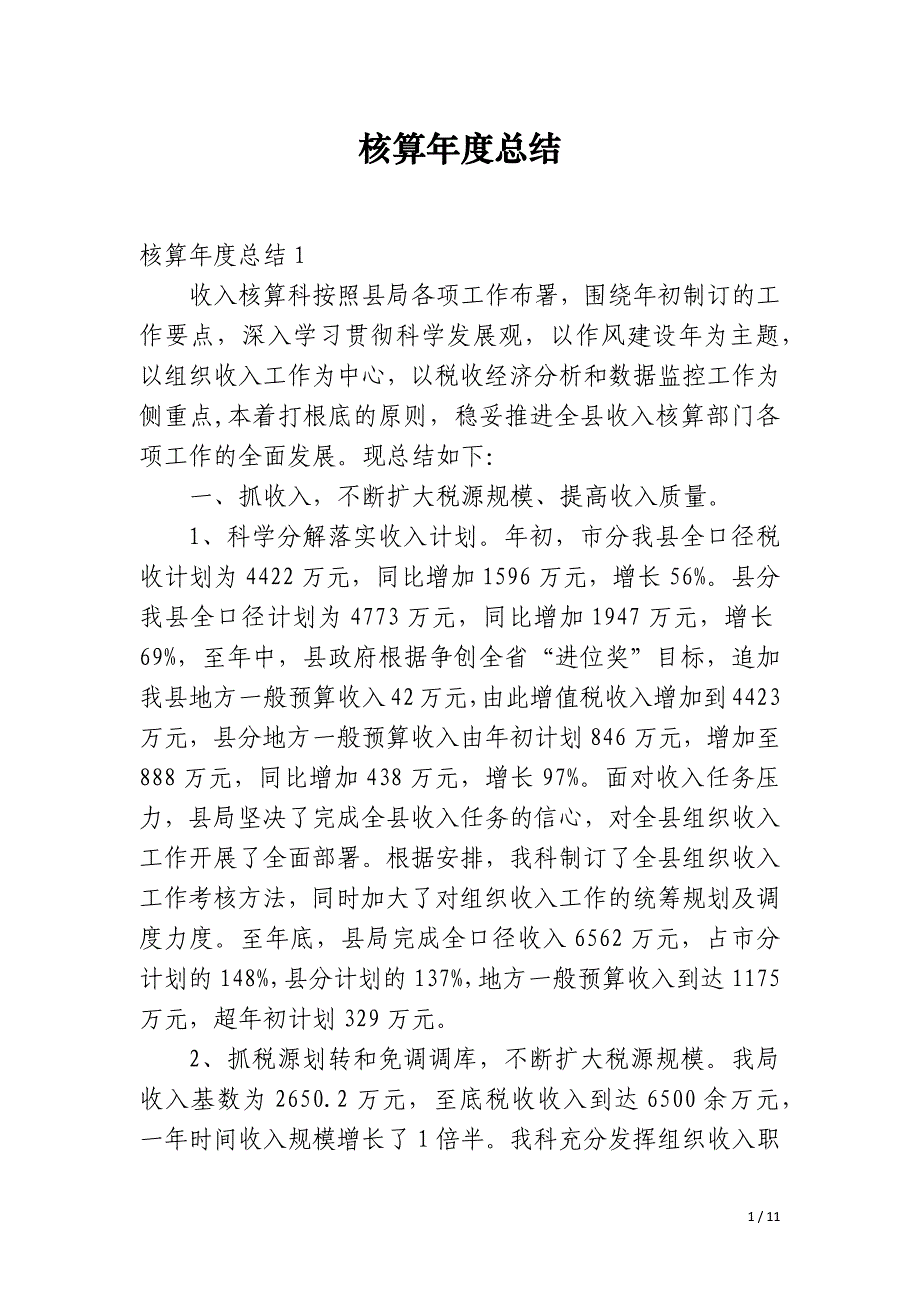 核算年度总结
核算年度总结1
收入核算科按照县局各项工作布署，围绕年初制订的工
作要点，深入学习贯彻科学发展观，以作风建设年为主题，
以组织收入工作为中心，以税收经济分析和数据监控工作为
侧重点,本着打根底的原则，稳妥推进全县收入核算部门各
项工作的全面发展。现总结如下:
一、抓收入，不断扩大税源规模、提高收入质量。
1、科学分解落实收入计划。年初，市分我县全口径税
收计划为4422万元，同比增加1596万元，增长56%。县分
我县全口径计划为4773万元，同比增加1947万元，增长
69%，至年中，县政府根据争创全省“进位奖”目标，追加
我县地方一般预算收入42万元,由此增值税收入增加到4423
万元，县分地方一般预算收入由年初计划846万元，增加至
888万元，同比增加438万元，增长97%。面对收入任务压
力，县局坚决了完成全县收入任务的信心，对全县组织收入
工作开展了全面部署。根据安排，我科制订了全县组织收入
工作考核方法，同时加大了对组织收入工作的统筹规划及调
度力度。至年底，县局完成全口径收入6562万元，占市分
计划的148%,县分计划的137%,地方一般预算收入到达1175
万元，超年初计划329万元。
2、抓税源划转和免调调库，不断扩大税源规模。我局
收入基数为2650.2万元，至底税收收入到达6500余万元，
一年时间收入规模增长了1倍半。我科充分发挥组织收入职
1 / 11